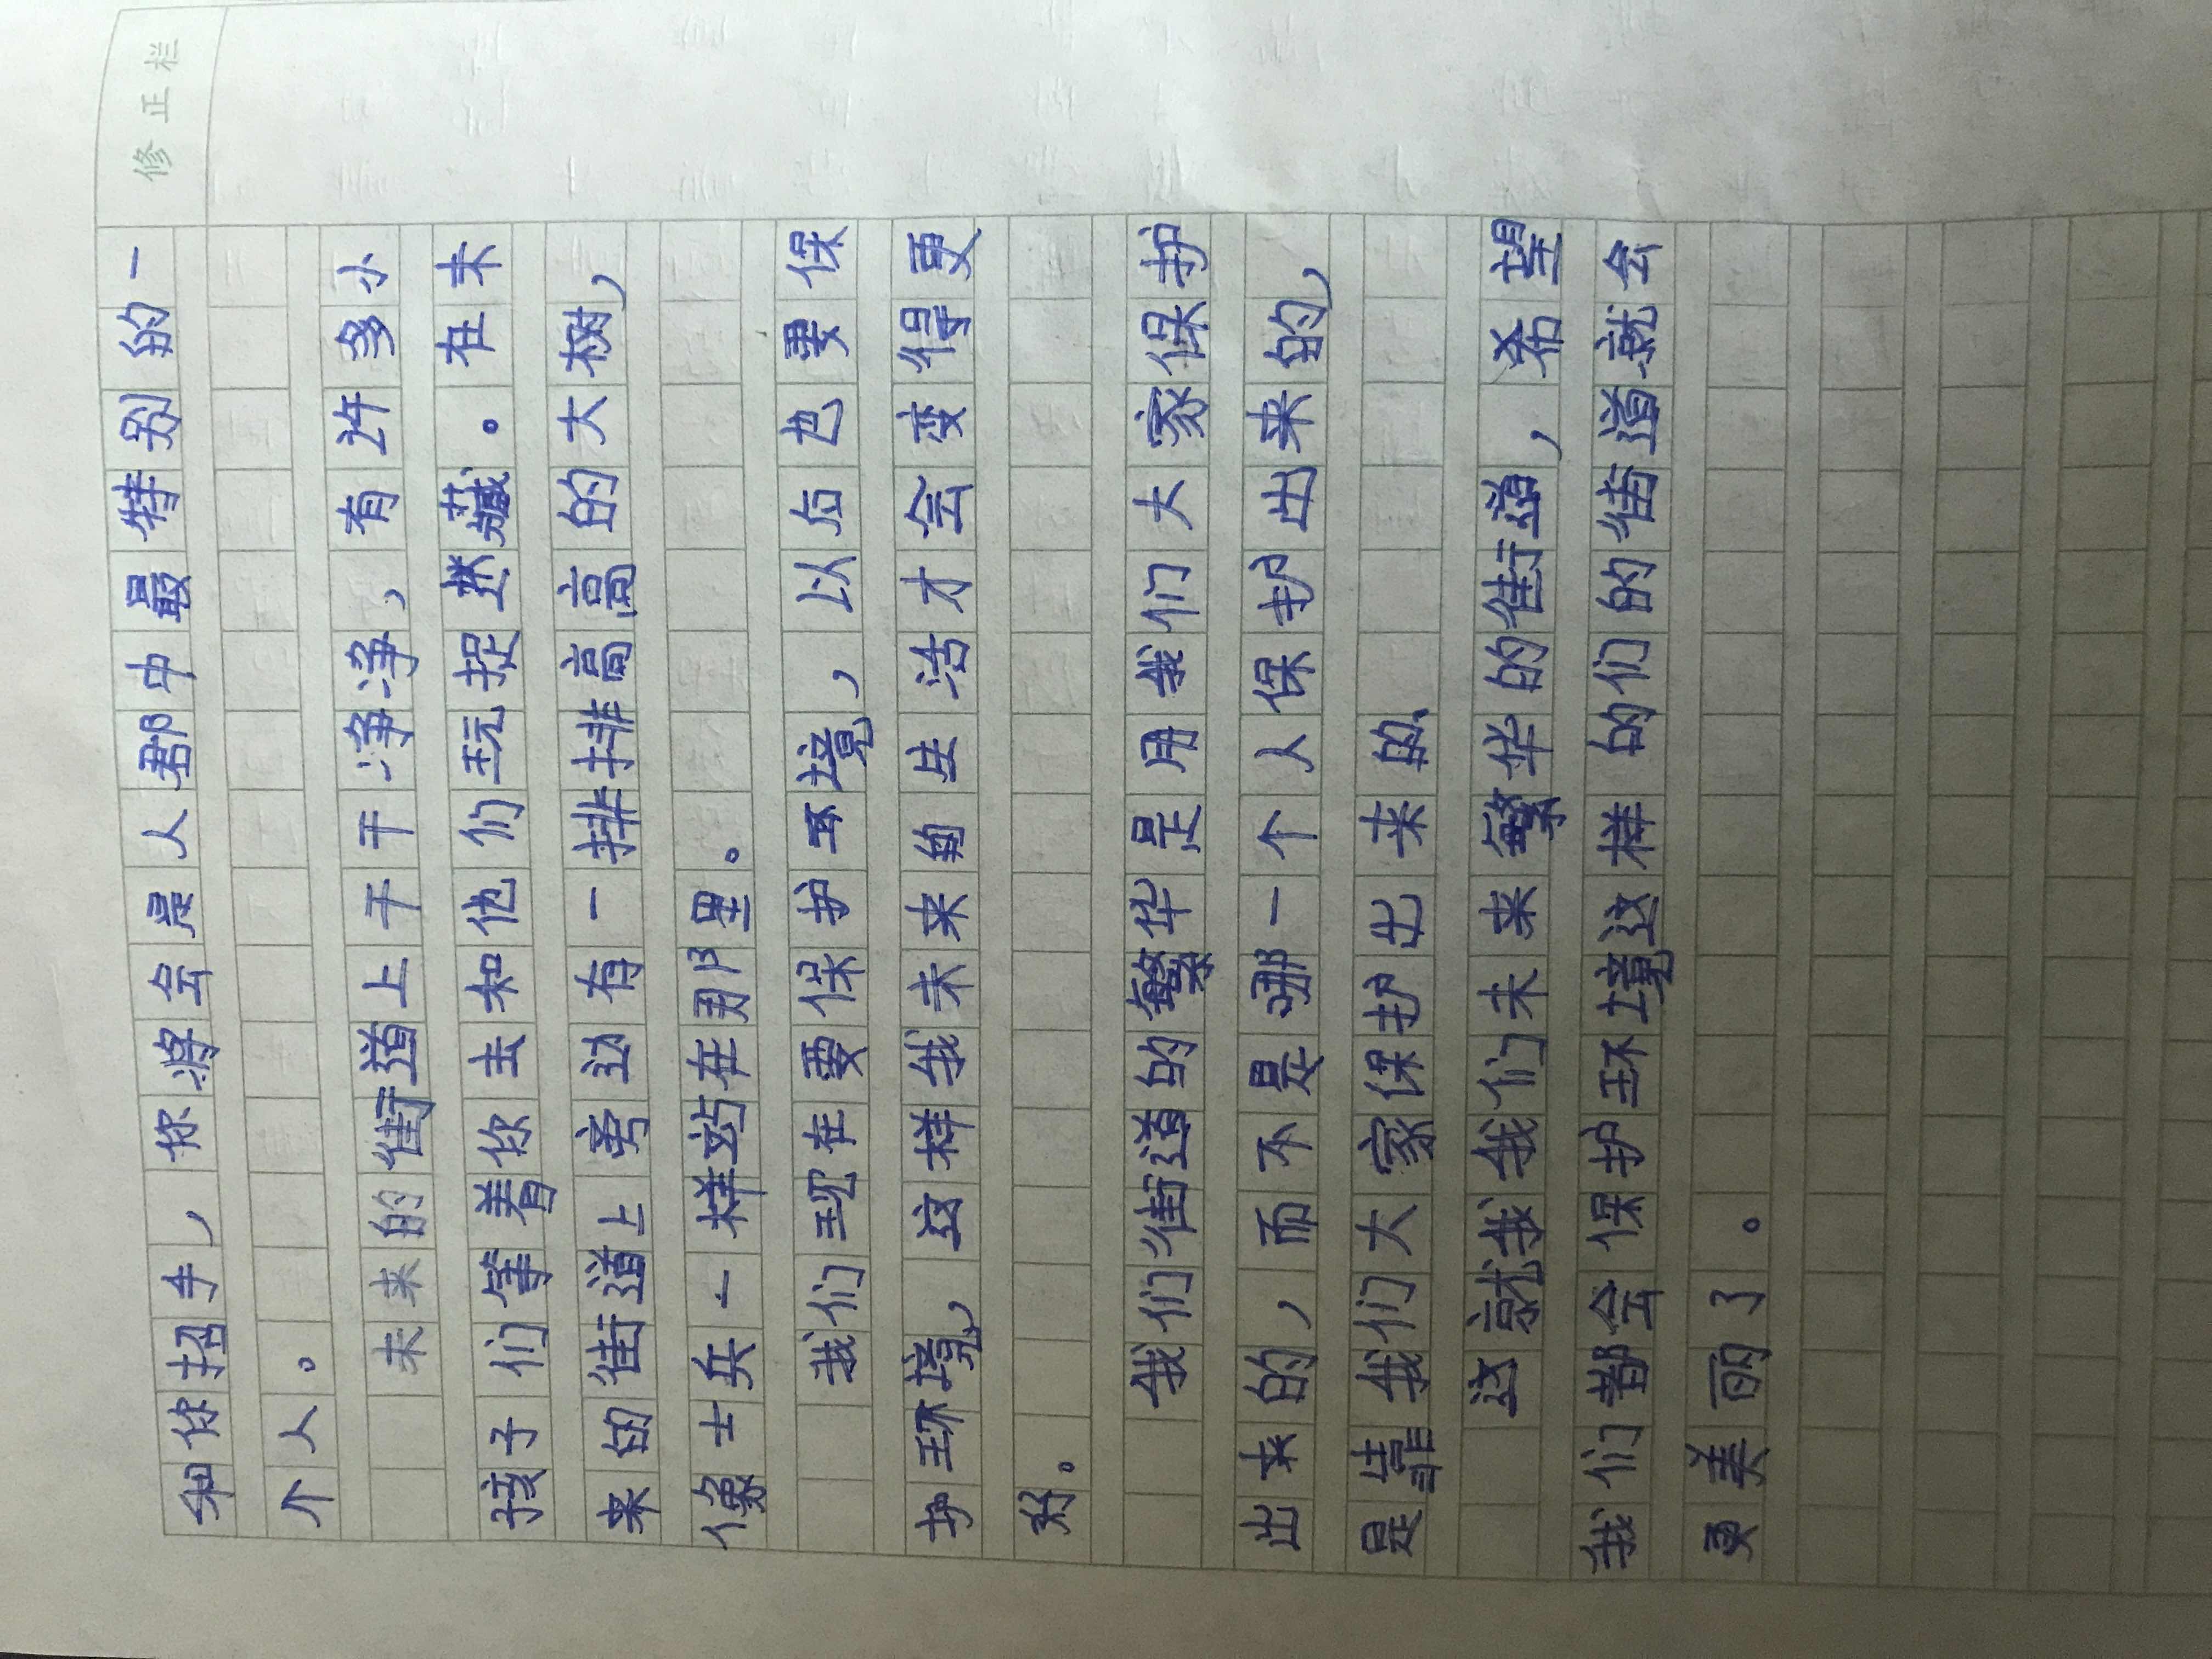 修正栏
和你招手，你将会是人群中最特别的一
个人。
未来的街道上干干净净，有许多小
孩子们等着你去和他们玩捉迷藏。在未
来的街道上旁边有一排排高高的大树，
像士兵一样站在那里。
我们现在要保护环境，以后也要保
护环境，这样我未来的生活才会变得更
好。
我们街道的繁华是用我们大家保护
出来的，而不是哪一个人保护出来的，
是靠我们大家保护出来的、
这就我我们未来繁华的街道，希望
我们都会保护环境这样的们的街道就会
更美丽了。